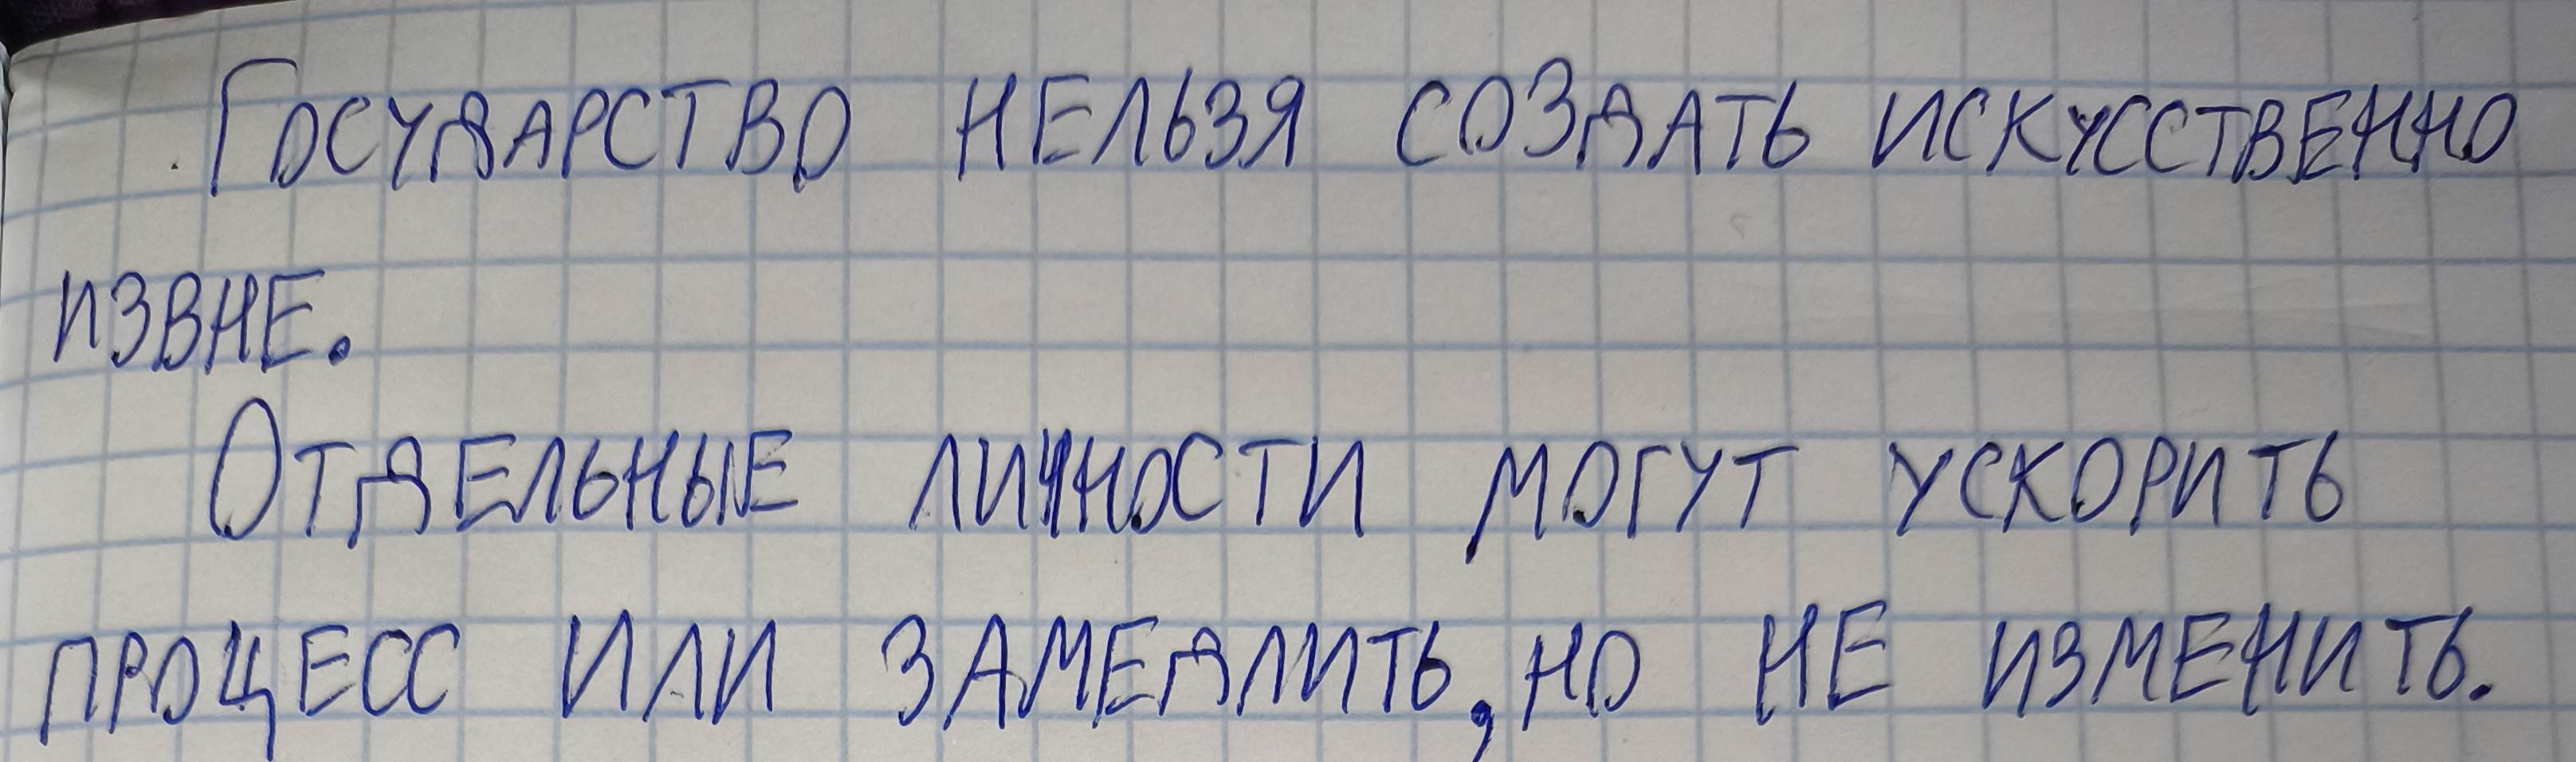 Государство нельзя создать искусственно
извне.
Отдельные личности могут ускорить
процесс или замедлить, но не изменить.